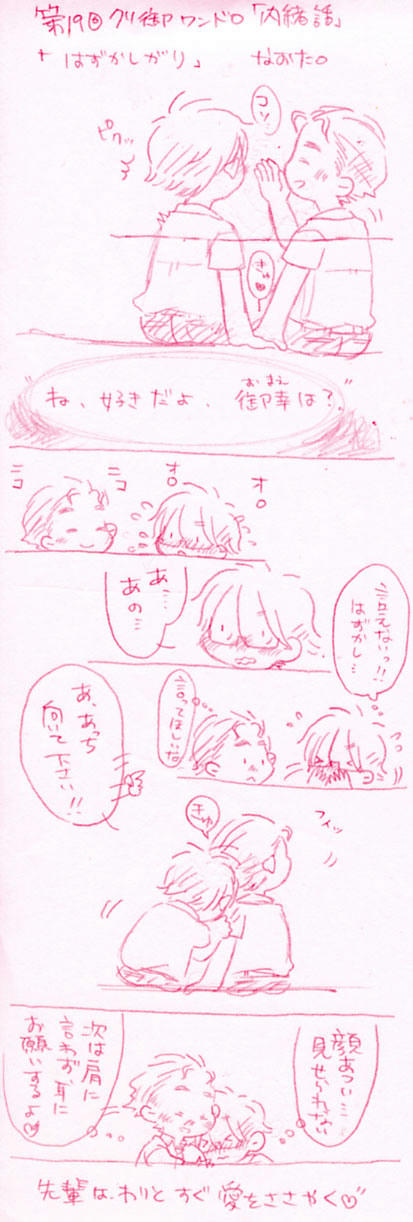 第19回クリ御ワンドロ「内緒話」
「はずかしがり」 なおたo
コソ
ピクッ
ぎゅ♥
"ね、好きだよ、御幸は?"
おまえ
ニコ
ニコ
オロ
オロ
あ…
あの…
言えないっ!!
はずかし…
言ってほしいな
あ、あっち
向いて下さい!!
フイッ
きゅ
顔あつい…
見せられない
次は肩に
言わず、耳に
お願いするよ♥
先輩は、わりと すぐ 愛をささやく♡